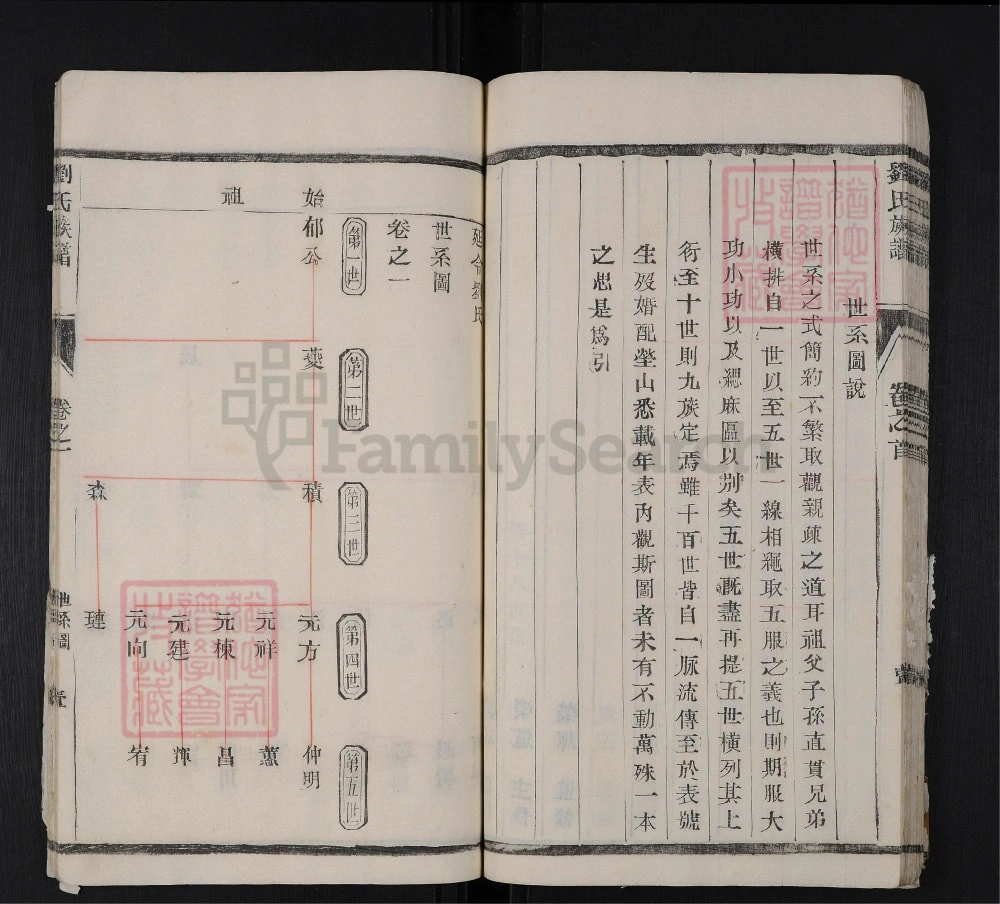 劉氏族譜
卷之首
世系圖說
世系之式簡約不繁取觀親疎之道耳祖父子孫直貫兄弟
橫排自一世以至五世一線相繩取五服之義也則期服大
功小功以及緦麻區以別矣五世旣盡再提五世橫列其上
衍至十世則九族定焉雖千百世皆自一脉流傳至於表號
生歿婚配塋山悉載年表內觀斯圖者未有不動萬殊一本
之思是爲引
世系圖
卷之一
第一世
第二世
第三世
第四世
第五世
始祖
郁公
爽
積
元方
仲明
元祥
薫
元棟
昌
元建
輝
元向
宥
森
璉
劉氏族譜
卷之一
世系圖
壹
FamilySearch